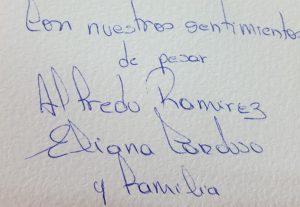 Con nuestros sentimientos
de pesar
Alfredo Ramirez
Eliana Cardoso
y Familia